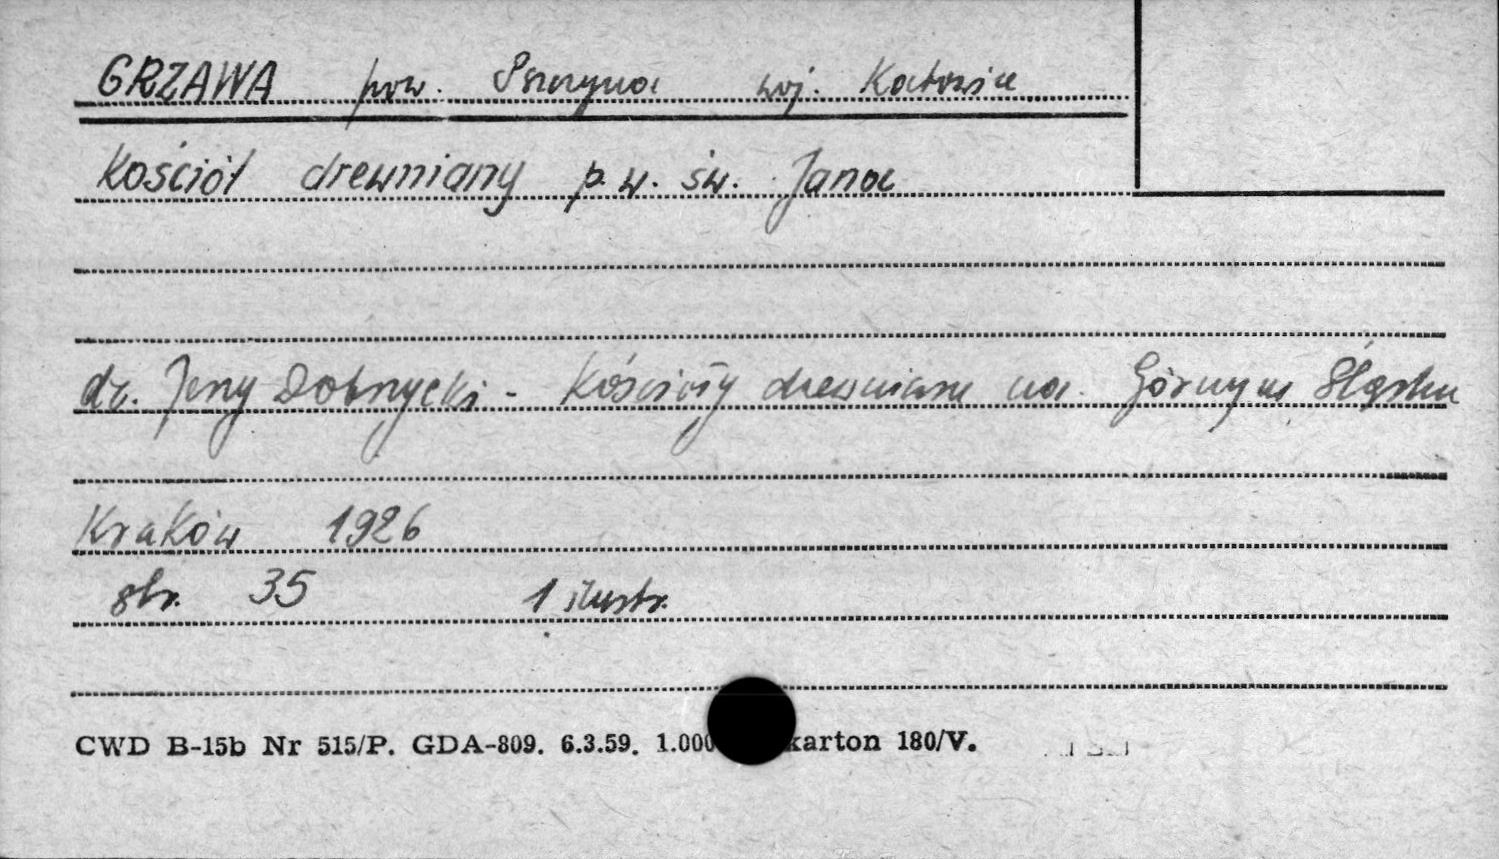 GRZAWA pow. Pszczyna woj. Katowice
Kościół drewniany p.w. św. Jana
dr. Jerzy Dobrzycki - Kościoły drewniane na Górnym Śląsku
Kraków 1926
str. 35 1 ilustr.
CWD B-15b Nr 515/P. GDA-809. 6.3.59. 1.000 karton 180/V.